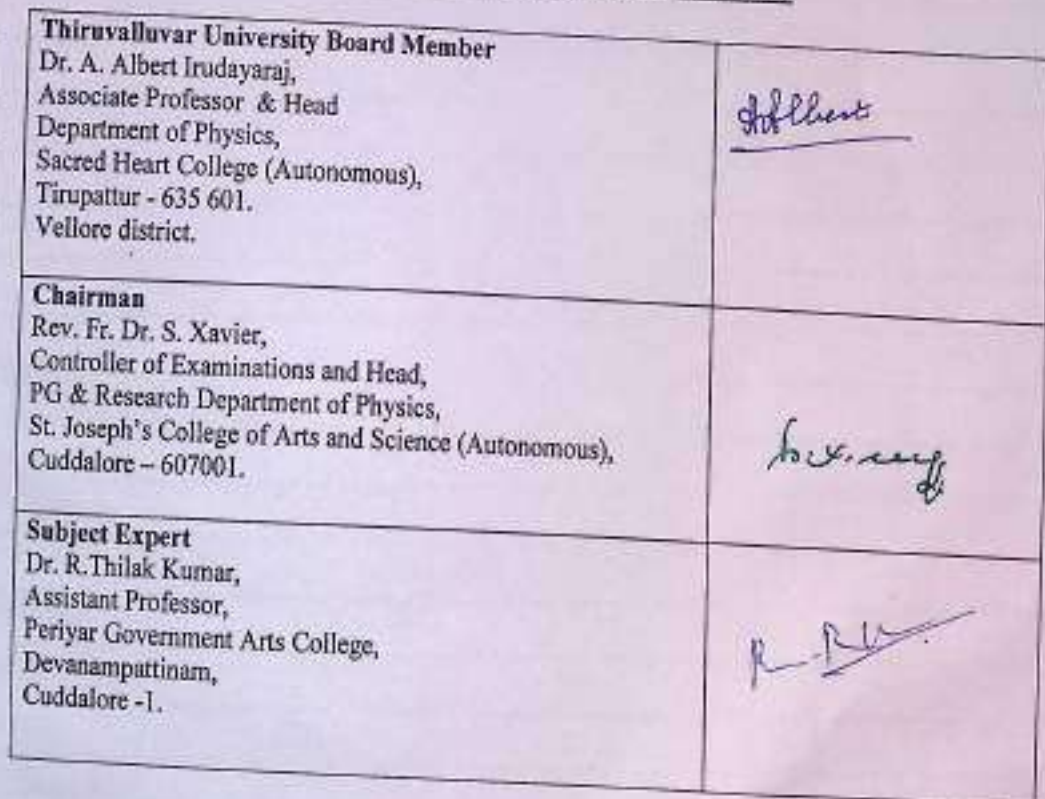 Thiruvalluvar University Board Member
Dr. A. Albert Irudayaraj,
Associate Professor & Head
Department of Physics,
Sacred Heart College (Autonomous),
Tirupattur - 635 601.
Vellore district.
Chairman
Rev. Fr. Dr. S. Xavier,
Controller of Examinations and Head,
PG & Research Department of Physics,
St. Joseph's College of Arts and Science (Autonomous),
Cuddalore – 607001.
Subject Expert
Dr. R.Thilak Kumar,
Assistant Professor,
Periyar Government Arts College,
Devanampattinam,
Cuddalore -1.